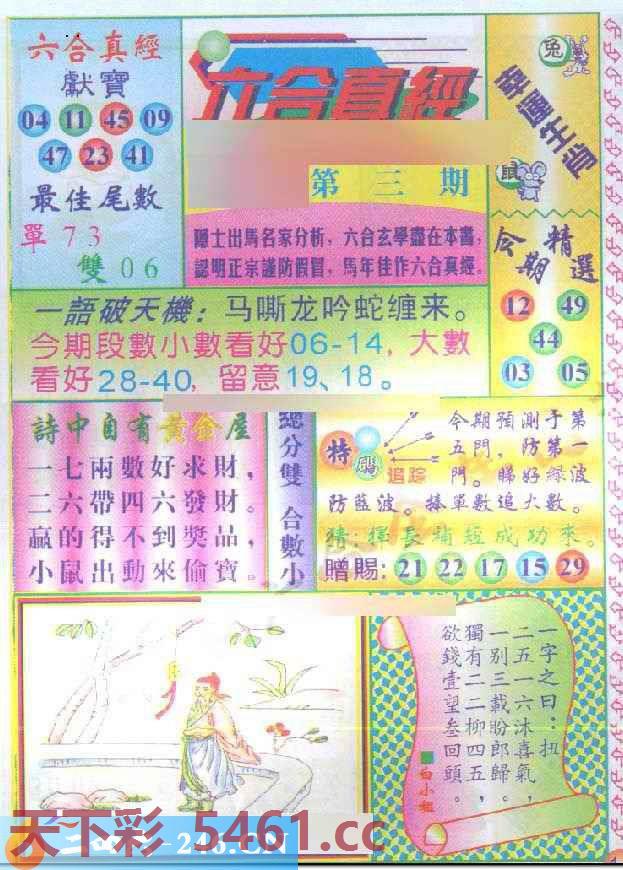 六合真經
獻寶
04 11 45 09
47 23 41
最佳尾數
單 7 3
雙 0 6
六合真經
第三期
隱士出馬名家分析，六合玄學盡在本書，
認明正宗謹防假冒，馬年佳作六合真經。
幸運生肖
兔
鼠
今期精選
12 49
44
03 05
一語破天機：马嘶龙吟蛇缠来。
今期段數小數看好06-14，大數
看好28-40，留意19、18。
詩中自有黄金屋
一七兩數好求財，
二六帶四六發財。
贏的得不到獎品，
小鼠出動來偷寶。
總分雙 合數小
特碼
追踪
今期預測于第
五門，防第一
門。睇好綠波
防藍波。捧單數追大數。
猜：揮長補短成功來。
贈賜：21 22 17 15 29
一字之曰：扭
二五一六沐喜氣，
一别三載盼郎歸。
獨有二二柳四五，
欲錢壹望叁回頭。
白小姐
天下彩 5461.cc
246.CN